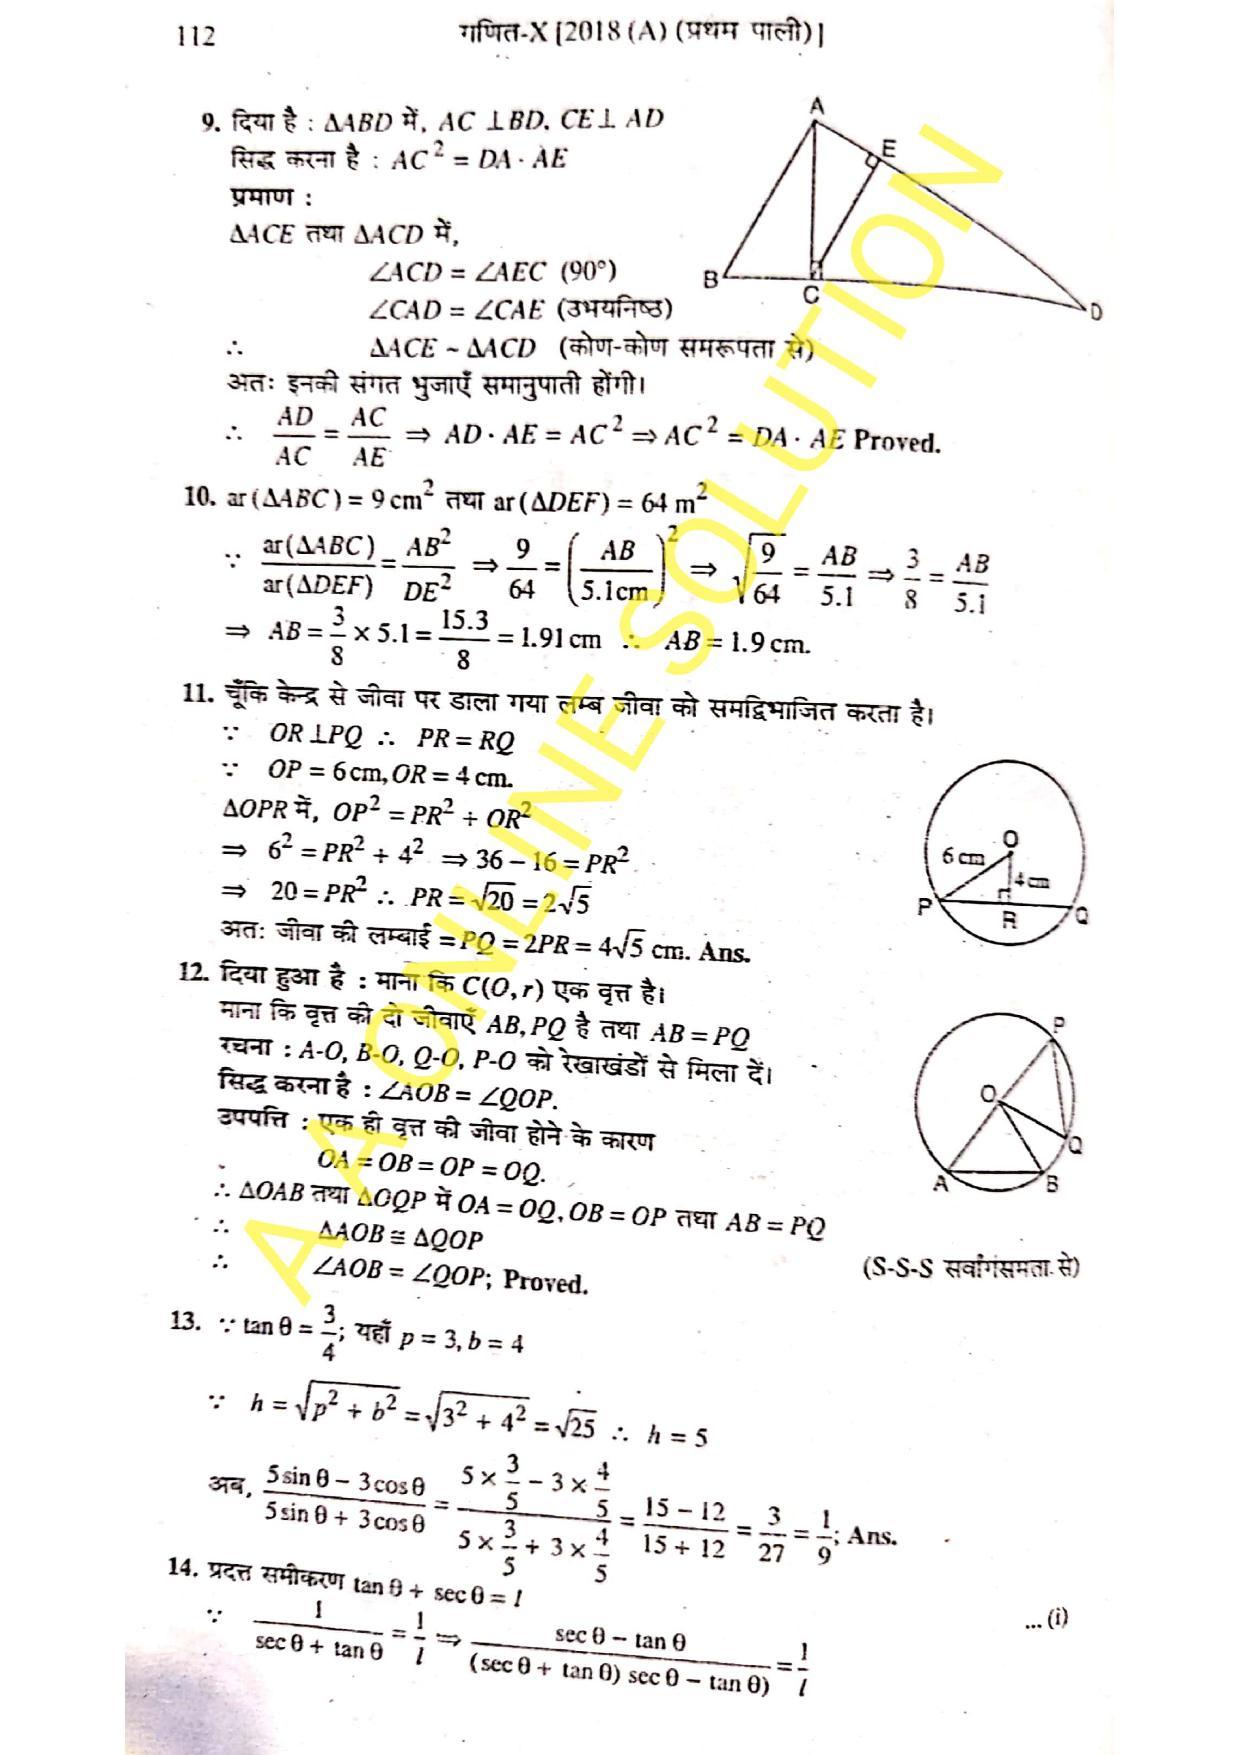 112 गणित-X [2018 (A) (प्रथम पाली)]
9. दिया है : ΔABD में, AC ⊥BD. CE⊥ AD
सिद्ध करना है : AC² = DA · AE
प्रमाण :
ΔACE तथा ΔACD में,
∠ACD = ∠AEC (90°)
∠CAD = ∠CAE (उभयनिष्ठ)
∴ ΔACE ~ ΔACD (कोण-कोण समरूपता से)
अतः इनकी संगत भुजाएँ समानुपाती होंगी।
∴ AD/AC = AC/AE ⇒ AD · AE = AC² ⇒ AC² = DA · AE Proved.
A
E
B
C
D
10. ar(ΔABC) = 9 cm² तथा ar(ΔDEF) = 64 m²
∵ ar(ΔABC)/ar(ΔDEF) = AB²/DE² ⇒ 9/64 = (AB/5.1cm)² ⇒ √(9/64) = AB/5.1 ⇒ 3/8 = AB/5.1
⇒ AB = 3/8 × 5.1 = 15.3/8 = 1.91 cm ∴ AB = 1.9 cm.
11. चूँकि केन्द्र से जीवा पर डाला गया लम्ब जीवा को समद्विभाजित करता है।
∵ OR ⊥PQ ∴ PR = RQ
∵ OP = 6 cm, OR = 4 cm.
ΔOPR में, OP² = PR² + OR²
⇒ 6² = PR² + 4² ⇒ 36 – 16 = PR²
⇒ 20 = PR² ∴ PR = √20 = 2√5
अतः जीवा की लम्बाई = PQ = 2PR = 4√5 cm. Ans.
O
6 cm
4 cm
P
R
Q
12. दिया हुआ है : माना कि C(O, r) एक वृत्त है।
माना कि वृत्त की दो जीवाएँ AB, PQ है तथा AB = PQ
रचना : A-O, B-O, Q-O, P-O को रेखाखंडों से मिला दें।
सिद्ध करना है : ∠AOB = ∠QOP.
उपपत्ति : एक ही वृत्त की जीवा होने के कारण
OA = OB = OP = OQ.
∴ ΔOAB तथा ΔOQP में OA = OQ, OB = OP तथा AB = PQ
∴ ΔAOB ≅ ΔQOP (S-S-S सर्वांगसमता से)
∴ ∠AOB = ∠QOP; Proved.
P
O
Q
A
B
13. ∵ tan θ = 3/4; यहाँ p = 3, b = 4
∵ h = √(p² + b²) = √(3² + 4²) = √25 ∴ h = 5
अब, (5 sin θ – 3 cos θ)/(5 sin θ + 3 cos θ) = (5 × 3/5 – 3 × 4/5)/(5 × 3/5 + 3 × 4/5) = (15 – 12)/(15 + 12) = 3/27 = 1/9; Ans.
14. प्रदत्त समीकरण tan θ + sec θ = l ... (i)
∵ 1/(sec θ + tan θ) = 1/l ⇒ (sec θ – tan θ)/((sec θ + tan θ) sec θ – tan θ) = 1/l
A A ONLINE SOLUTION